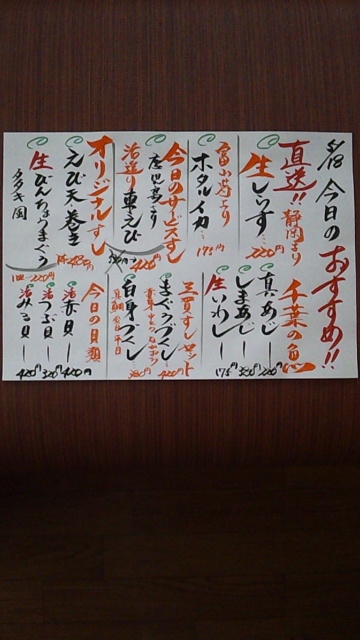 今日のおすすめ!!
直送!! 静岡より
生しらす 220円
富山湾より
ホタルイカ 175円
今日のサービスすし
鹿児島より
活造り車えび
420円
オリジナルすし
えび天巻き
生びんちょうまぐろ
千葉の魚
真あじ 220円
しまあじ 380円
生いわし 175円
三貫すしセット
まぐろづくし 420円
白身づくし 380円
今日の貝類
活赤貝 420円
活つぶ貝 320円
活みる貝 420円